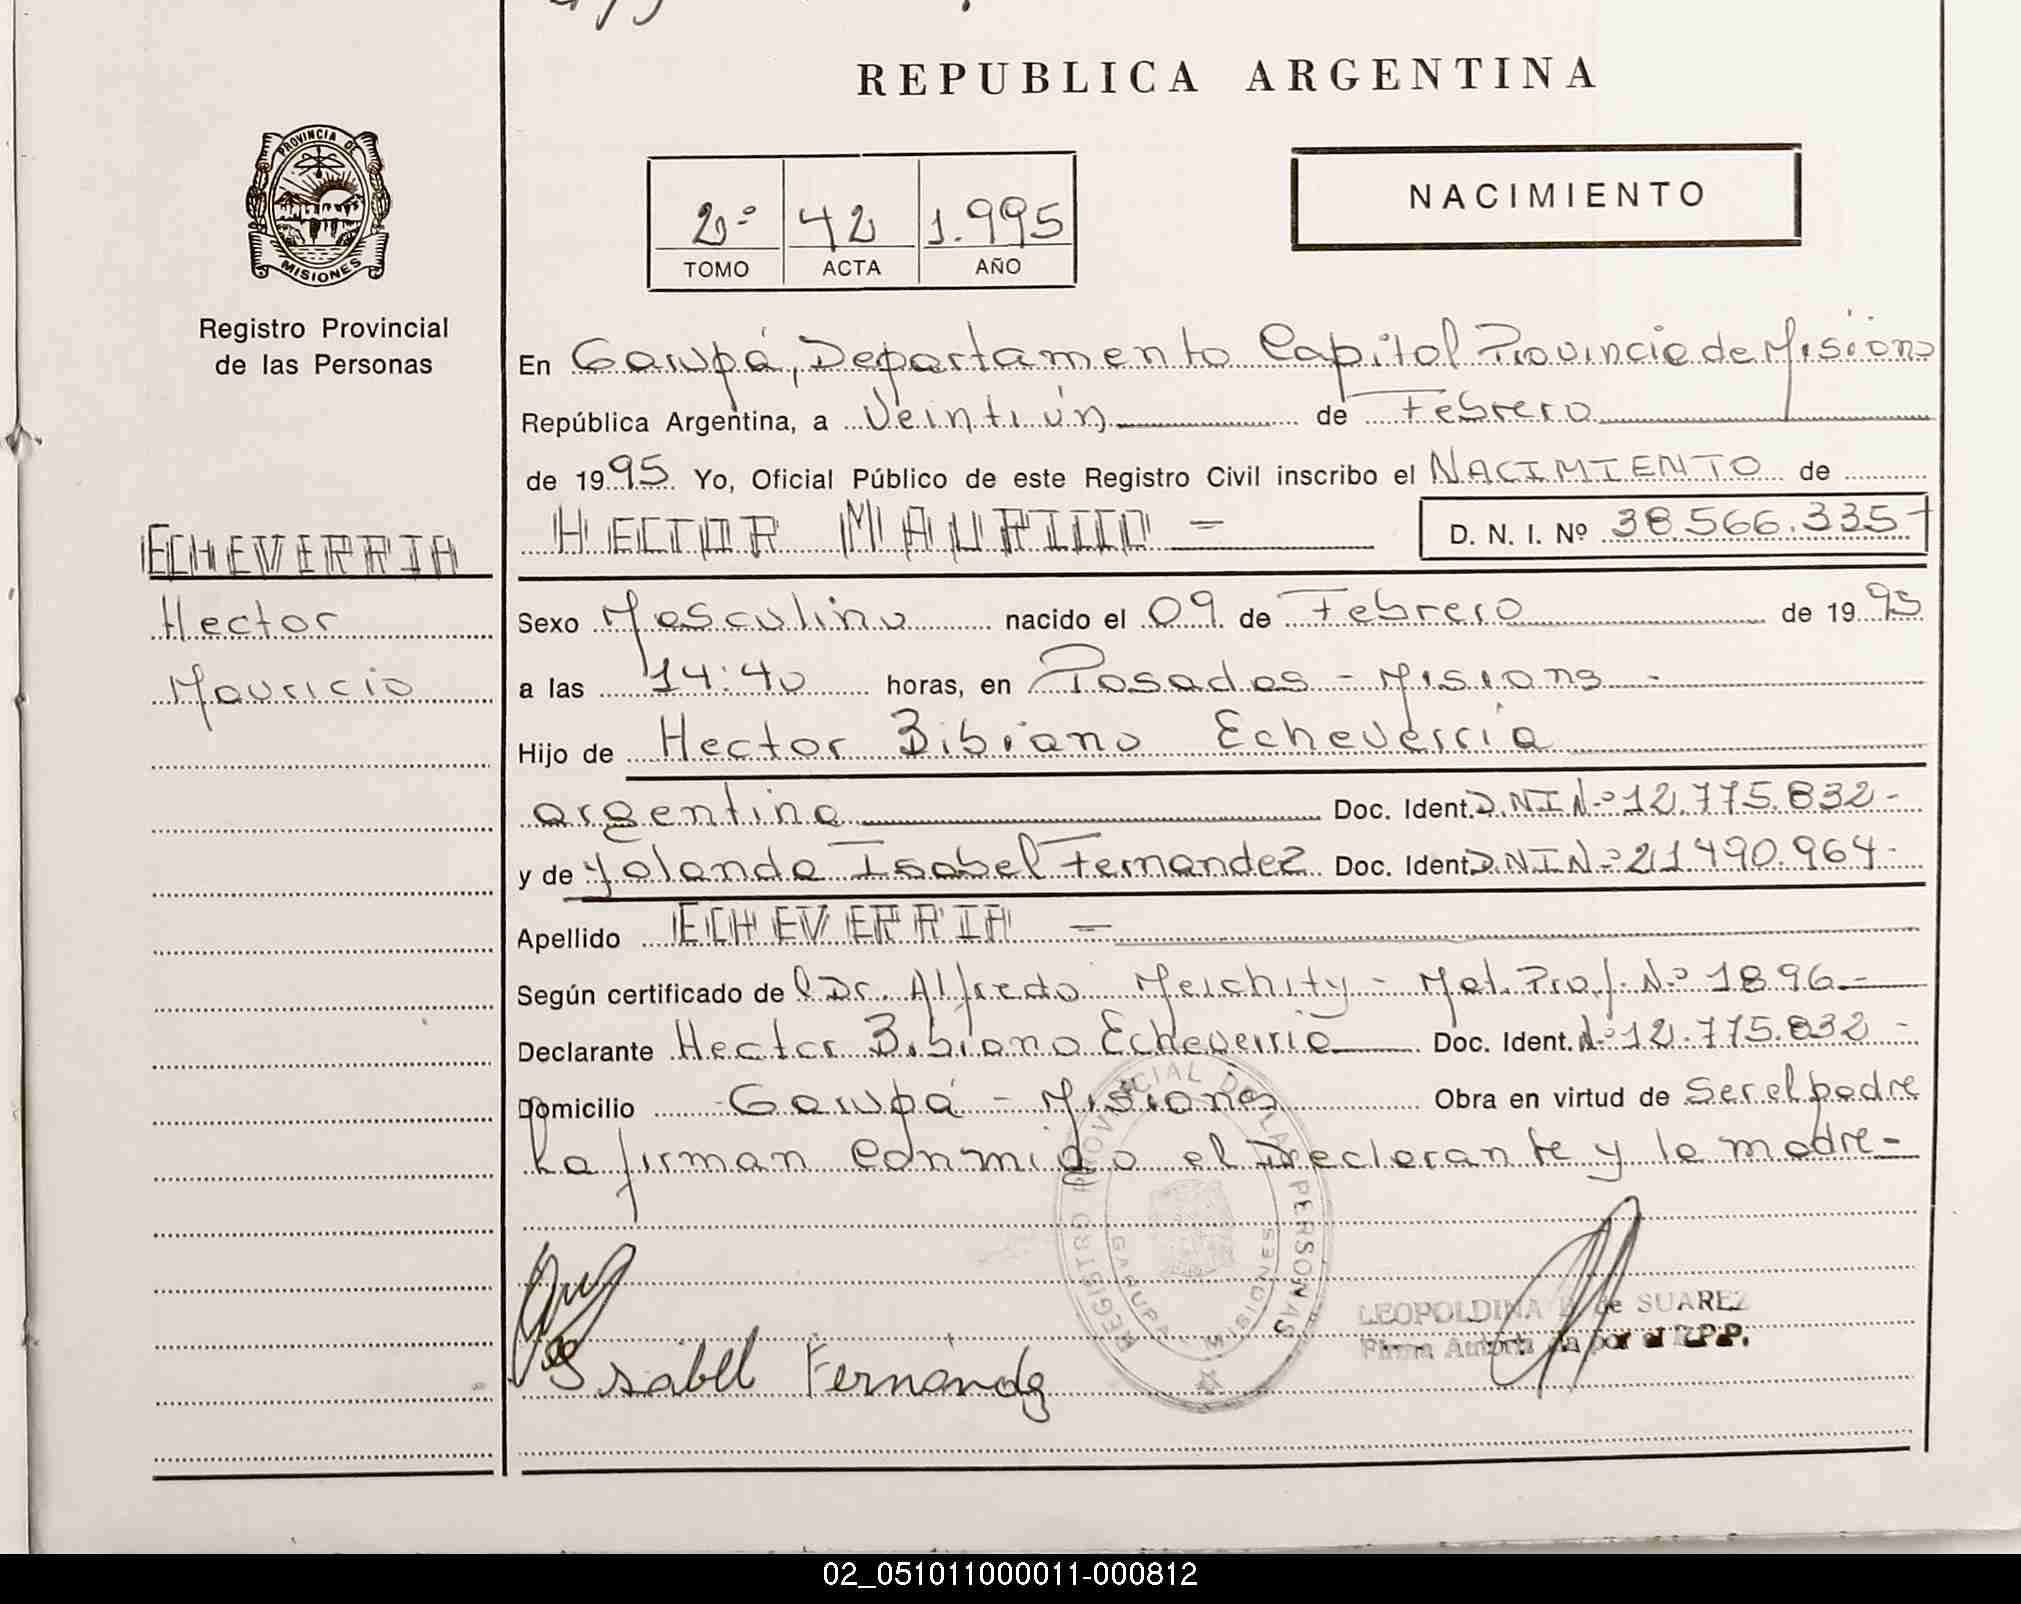 REPUBLICA ARGENTINA
PROVINCIA DE
MISIONES
Registro Provincial
de las Personas
2º 42 1.995
TOMO ACTA AÑO
NACIMIENTO
En Garupá, Departamento Capital Provincia de Misiones
República Argentina, a Veintiún de Febrero
de 1995 Yo, Oficial Público de este Registro Civil inscribo el NACIMIENTO de
HECTOR MAURICIO - D. N. I. Nº 38.566.335-
ECHEVERRIA
Hector
Mauricio
Sexo Masculino nacido el 09 de Febrero de 1995
a las 14:40 horas, en Posadas - Misiones -
Hijo de Hector Bibiano Echeverría
argentina Doc. Ident. DNI Nº 12.775.832-
y de Yolanda Isabel Fernandez Doc. Ident. DNI Nº 21.490.964-
Apellido ECHEVERRIA -
Según certificado del Dr. Alfredo Meichity - Mat. Prof. Nº 1896-
Declarante Hector Bibiano Echeverria Doc. Ident. Nº 12.775.832-
Domicilio Garupá - Misiones Obra en virtud de Ser el padre
La firman conmigo el Declarante y la madre-
REGISTRO PROVINCIAL DE LAS PERSONAS
GARUPA - MISIONES
LEOPOLDINA de SUAREZ
Firma Autorizada por el R.P.P.
Isabel Fernández
02_051011000011-000812